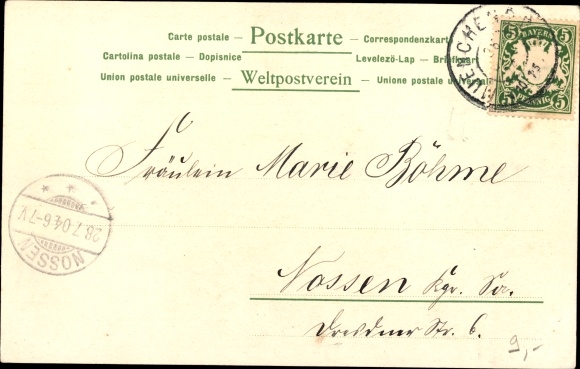 Carte postale — Postkarte — Correspondenzkart
Cartolina postale — Dopisnice Levelezö-Lap — Briefkaart
Union postale universelle — Weltpostverein — Unione postale universale
MUENCHEN
BAYERN
5 5
5 PFENNIG 5
Fräulein Marie Böhme
28.7.04.6-7V.
NOSSEN
Nossen Kgr. Sa.
Dresdner Str. 6.
9,-